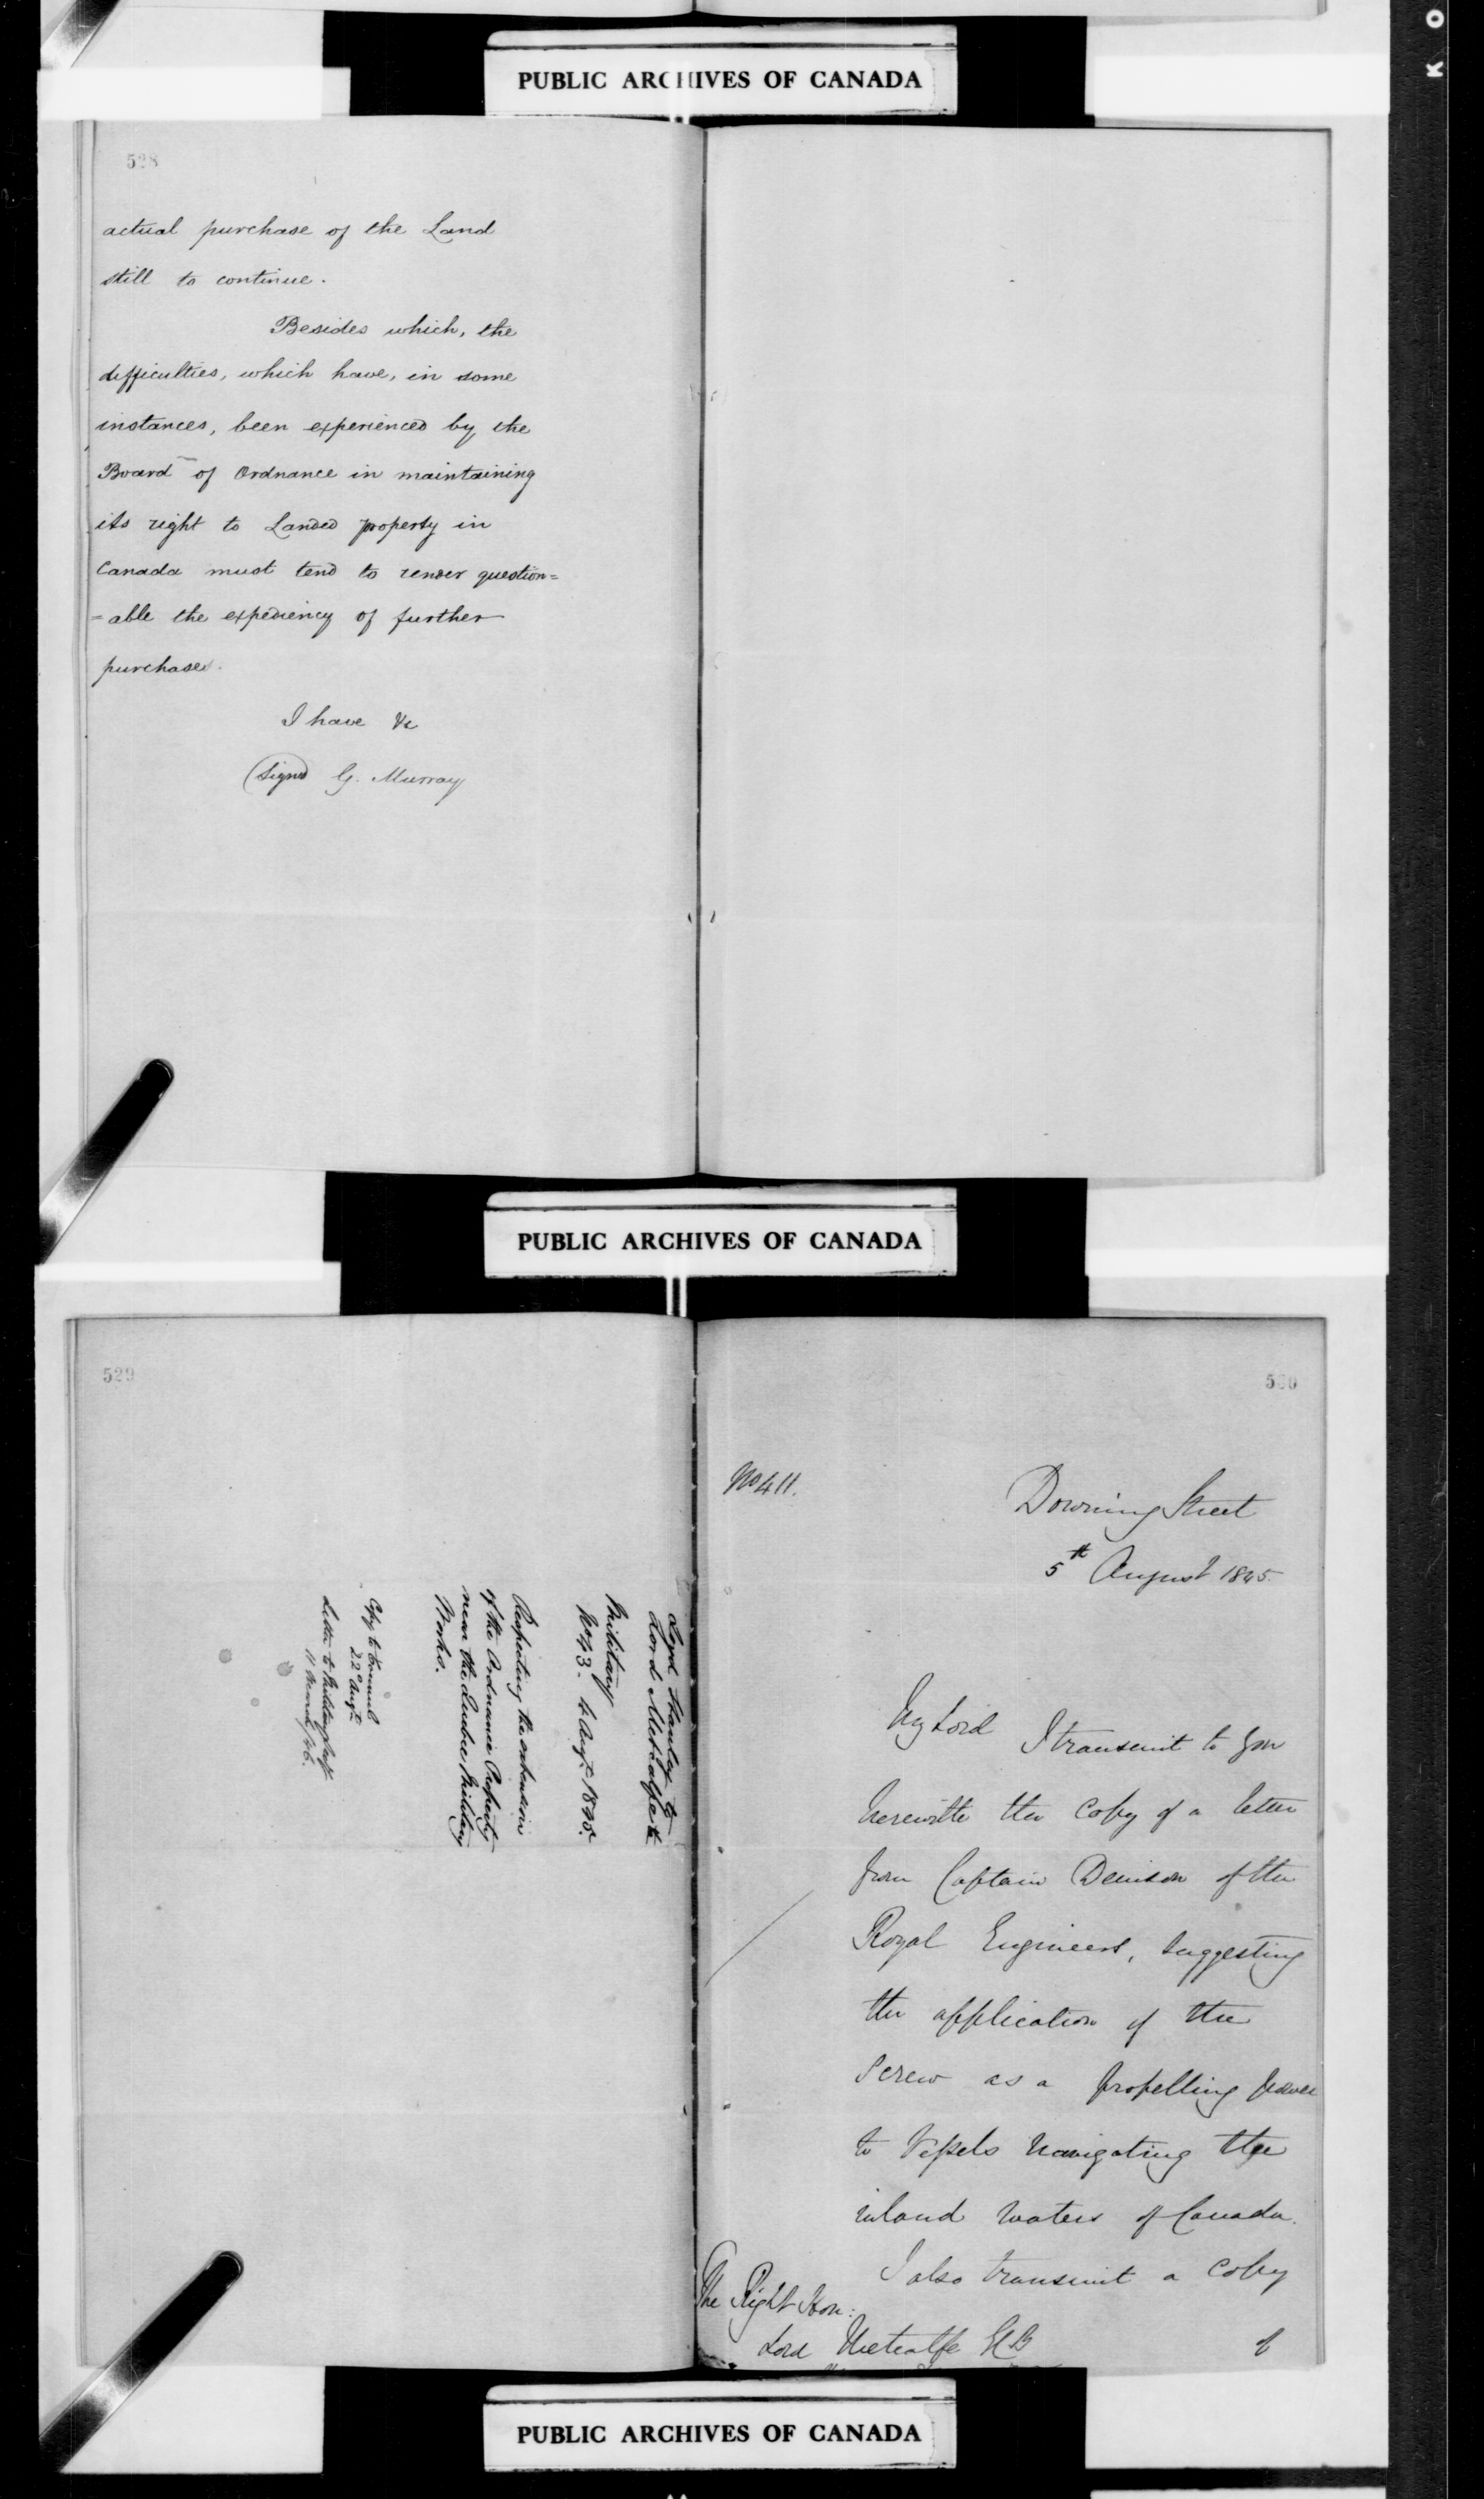 PUBLIC ARCHIVES OF CANADA
528
actual purchase of the Land
still to continue.
Besides which, the
difficulties, which have, in some
instances, been experienced by the
Board of Ordnance in maintaining
its right to Landed property in
Canada must tend to render question=
=able the expediency of further
purchases.
I have &c
(Signed G. Murray
PUBLIC ARCHIVES OF CANADA
529
Lord Stanley to
Lord Metcalfe
Military
No 43. 4 Augt. 1845.
Respecting the extension
of the Ordnance Property
near the Quebec Military
Works.
Copy to
22 Augt
Letter to
11 March /46.
530
No 411.
Downing Street
5th August 1845.
My Lord
I transmit to you
herewith the copy of a letter
from Captain Denison of the
Royal Engineers, suggesting
the application of the
Screw as a propelling power
to Vessels navigating the
inland waters of Canada.
I also transmit a copy
The Right Hon:
Lord Metcalfe GCB
of
PUBLIC ARCHIVES OF CANADA